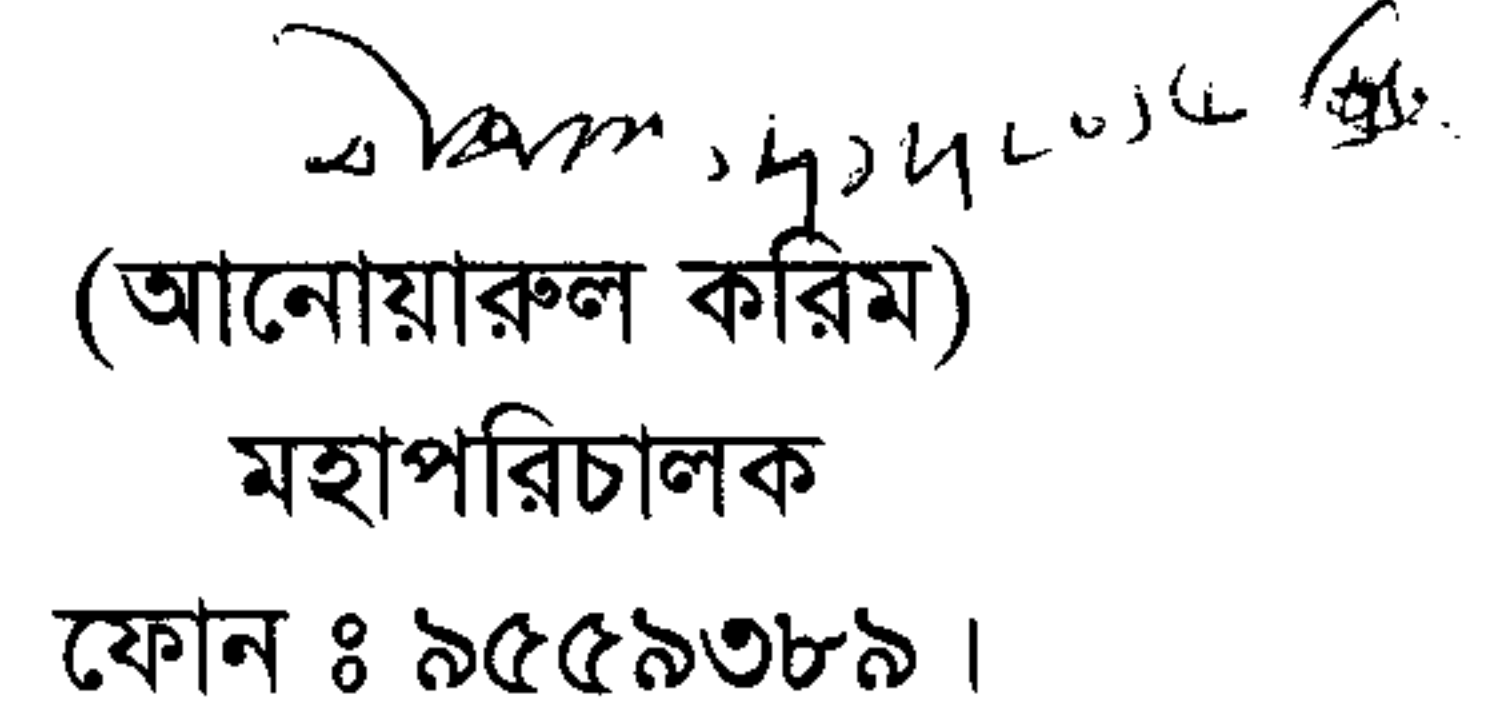 (আনোয়ারুল করিম)
মহাপরিচালক
ফোন ঃ ৯৫৫৯৩৮৯ ।